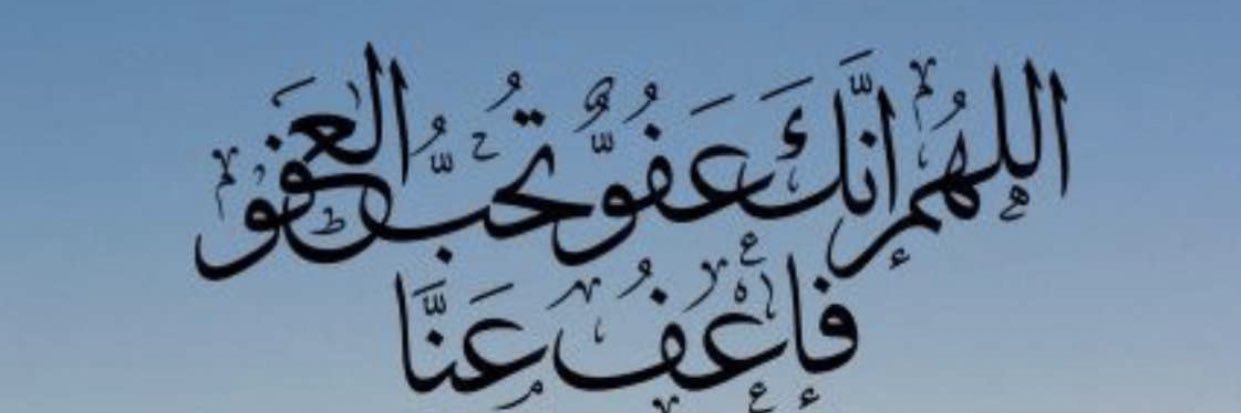 اللهُمَّ إنَّكَ عَفُوٌّ تُحِبُّ العَفْوَ
فَإعْفُ عَنَّا